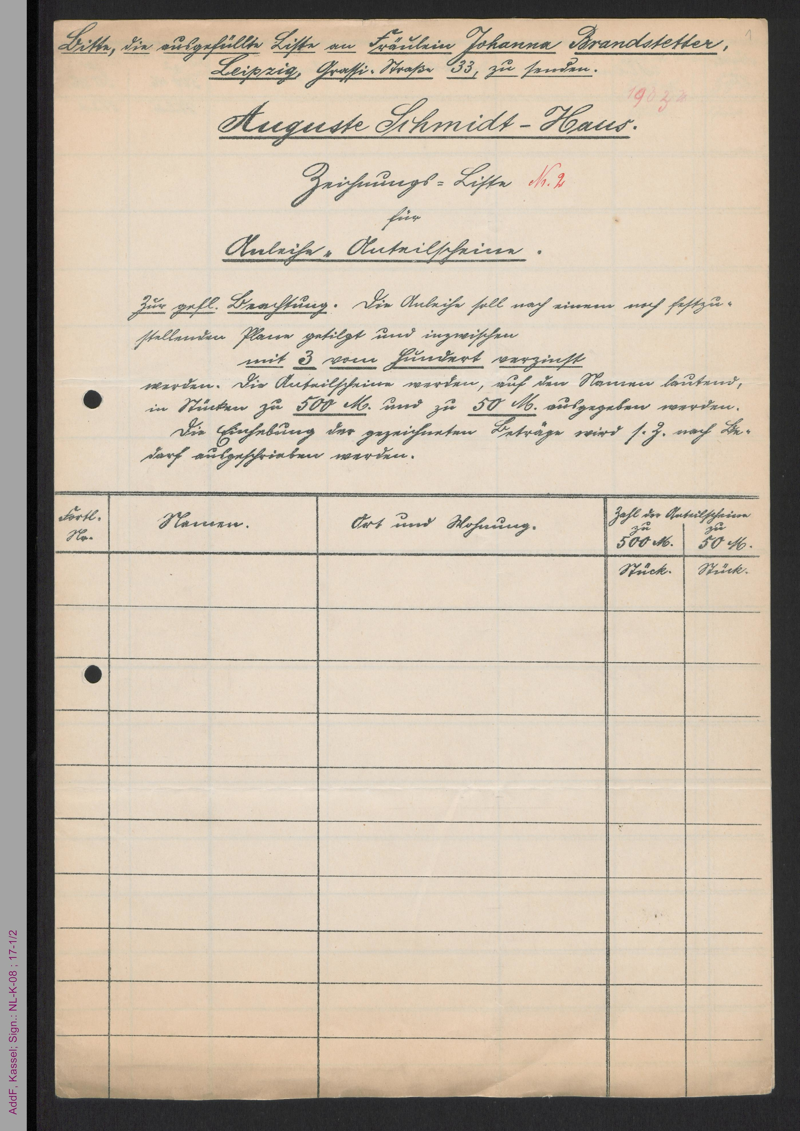 Bitte, die ausgefüllte Liste an Fräulein Johanna Brandstetter,
Leipzig, Grassi-Straße 33, zu senden.
1
Auguste Schmidt-Haus.
Zeichnungs-Liste Nr. 2
für
Anleihe-Anteilscheine.
Zur gefl. Beachtung. Die Anleihe soll nach einem noch festzu-
stellenden Plane getilgt und inzwischen
mit 3 vom Hundert verzinst
werden. Die Anteilscheine werden, auf den Namen lautend,
in Stücken zu 500 M. und zu 50 M. ausgegeben werden.
Die Einhebung der gezeichneten Beträge wird s. Z. nach Be-
darf ausgeschrieben werden.
Fortl.
No.
Namen.
Ort und Wohnung.
Zahl der Anteilscheine
zu
500 M.
zu
50 M.
Stück.
Stück.
AddF, Kassel; Sign.: NL-K-08 ; 17-1/2